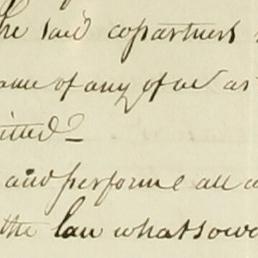 he said copartners
ame of any of us as
itted
and perform all a
the law whatsoev